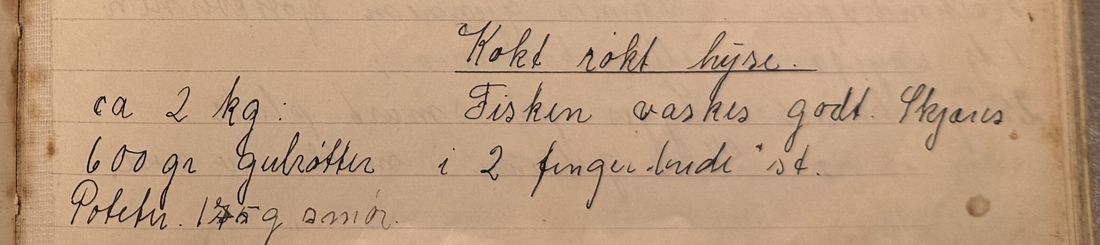 Kokt røkt hyse.
ca 2 kg: Fisken vaskes godt. Skjæres
600 gr gulrøtter i 2 fingerbrede st.
Poteter. 175 g smør.